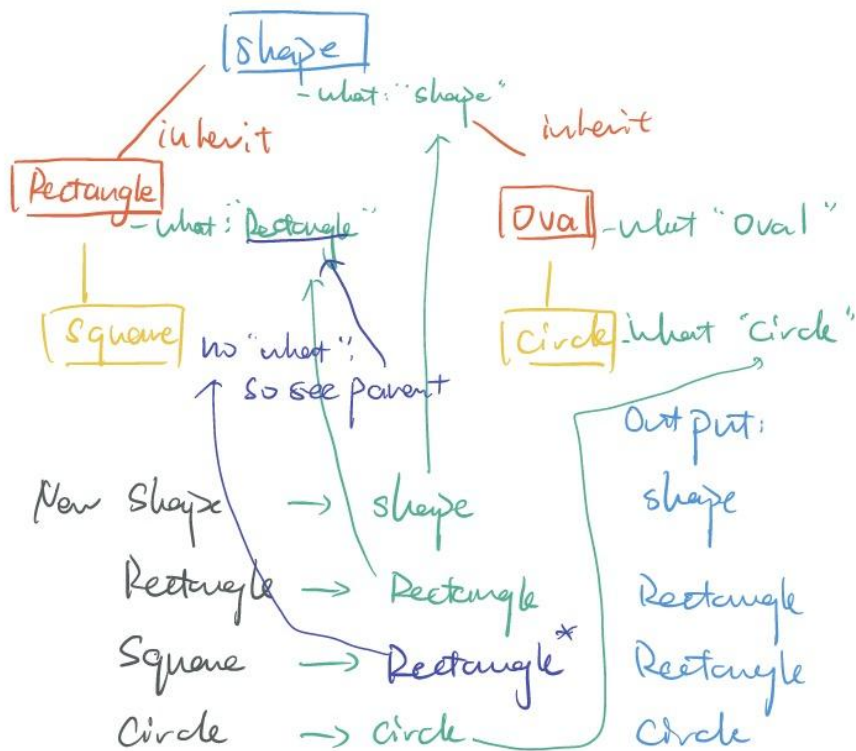 Shape
- what: "shape"
inherit
inherit
Rectangle
- what: "Rectangle"
Oval - what "Oval"
Square
no "what",
so see parent
Circle - what "Circle"
Output:
New Shape → shape
shape
Rectangle → Rectangle
Rectangle
Square → Rectangle*
Rectangle
Circle → circle
Circle